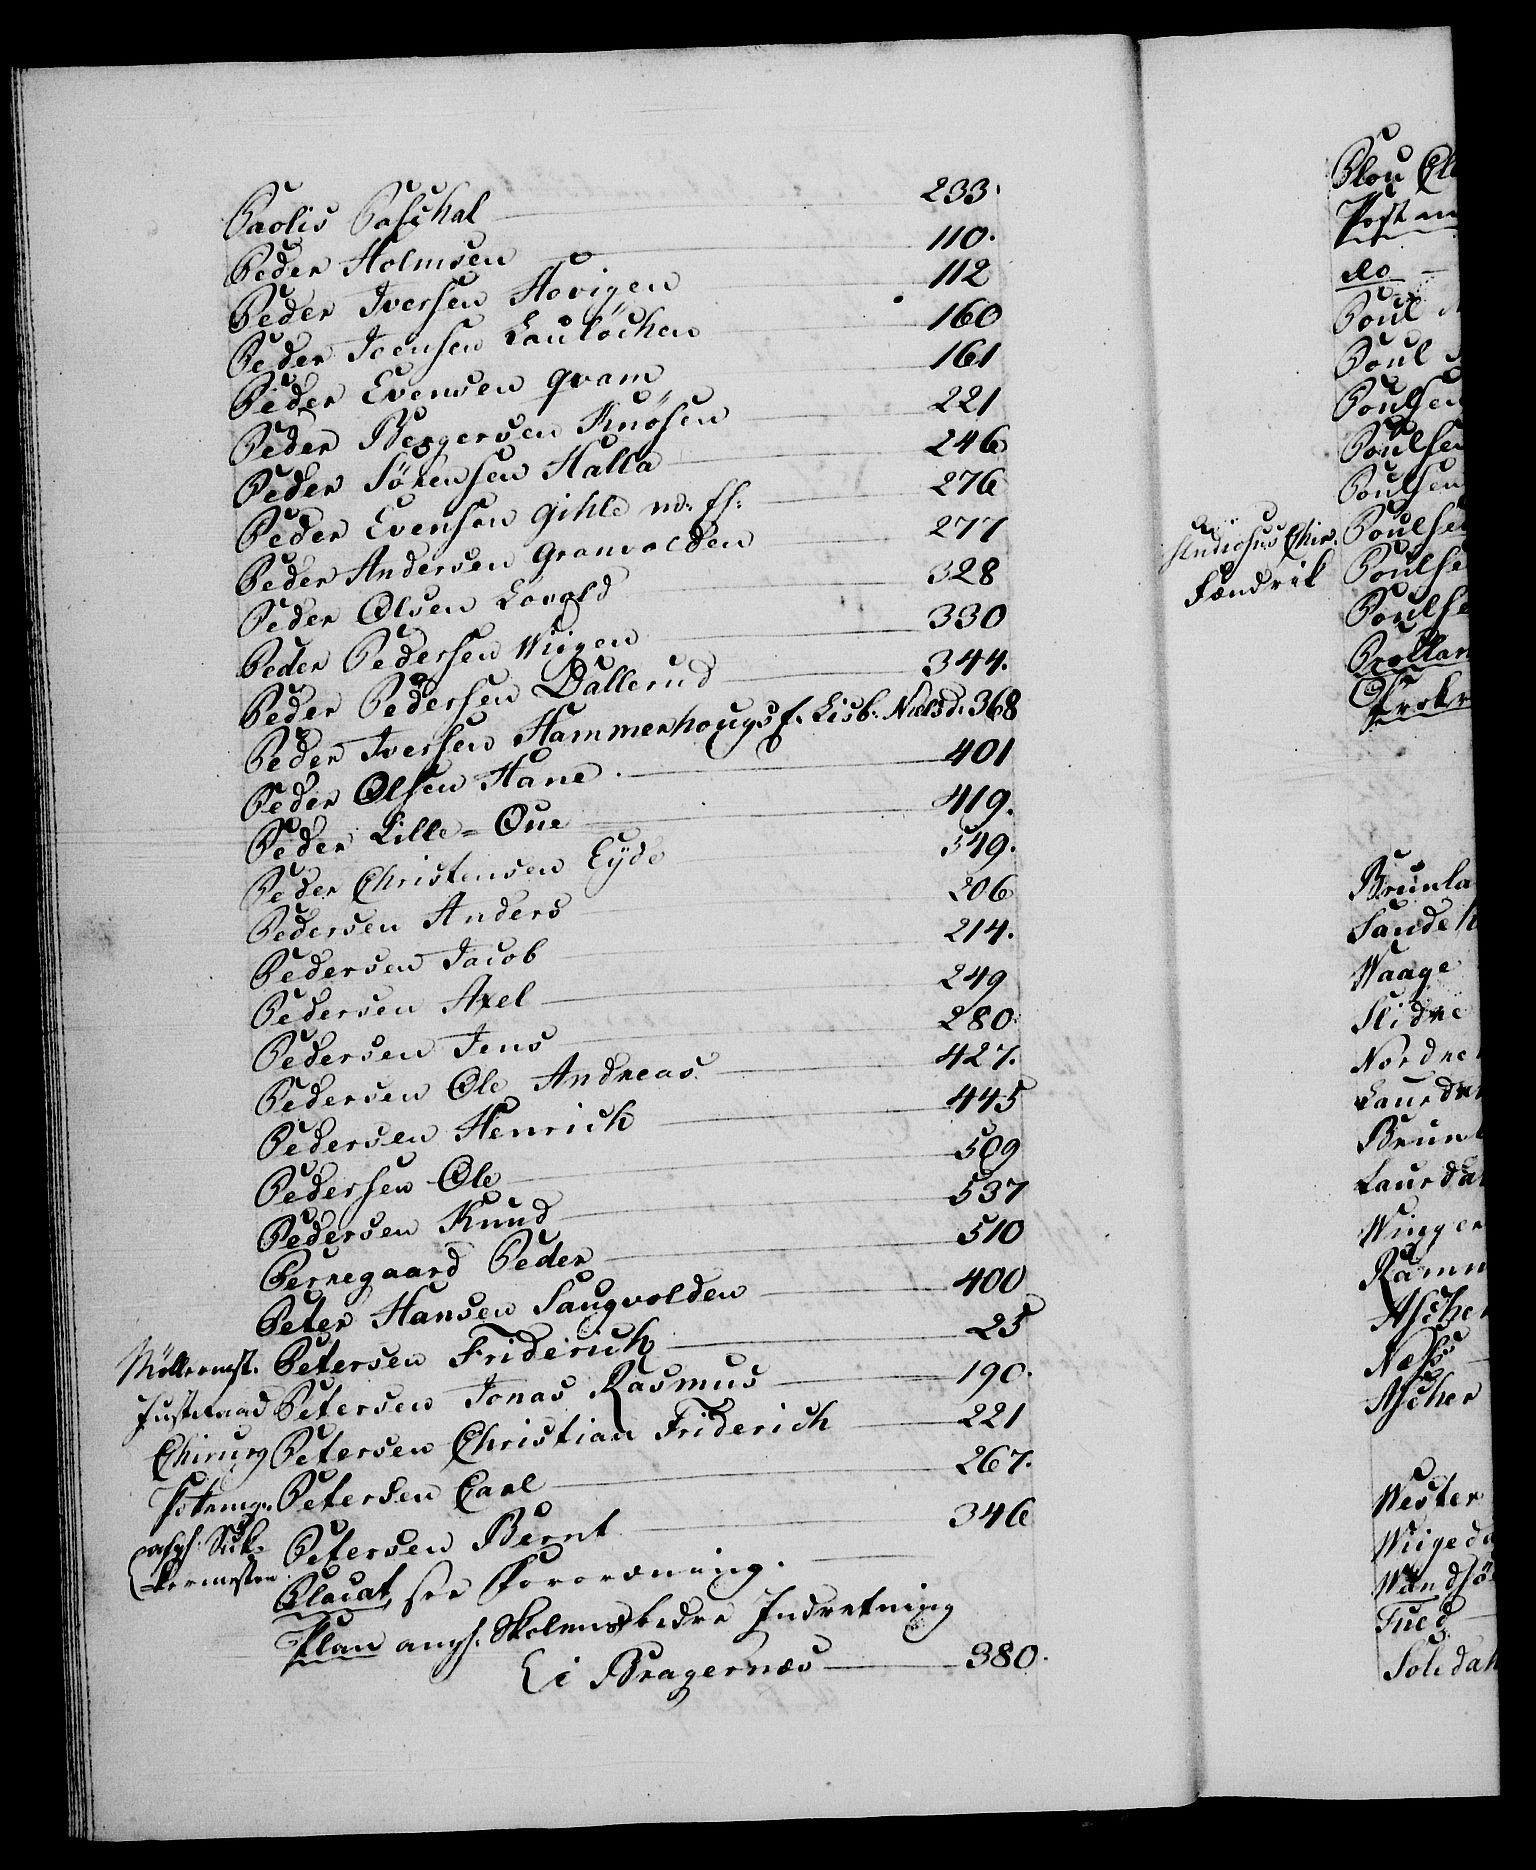 Paolis Paschal 233.
Peder Holmsen 110.
Peder Iversen Hovigen 112
Peder Joensen Laulöchen 160
Peder Evensen Qvam 161
Peder Bergersen Knösen 221
Peder Sörensen Halla 246
Peder Evensen Gihle m. fl: 276
Peder Andersen Granvolden 277
Peder Olsen Lovold 328
Peder Pedersen Wiigen 330
Peder Pedersen Dallerud 344.
Peder Iversen Hammerhougs f. Lisb: Nielsd. 368
Peder Olsen Hane 401
Peder Lille-Oue 419.
Peder Christensen Eyde 549.
Pedersen Anders 206
Pedersen Jacob 214.
Pedersen Axel 249
Pedersen Jens 280.
Pedersen Ole Andreas 427.
Pedersen Henrich 445
Pedersen Ole 509
Pedersen Knud 537
Pernegaard Peder 510
Peter Hansen Saugvolden 400
Möllermst. Petersen Friderich 25
Justitsraad Petersen Jonas Rasmus 190.
Chirurg Petersen Christian Friderich 221
Petersen Carl 267.
Petersen Bernt 346
Placat, see Forordning.
Plan angl. Skolens bedre Indretning
i Bragernæs 380.
Plou
Post
do
Poul
Poul
Poulsen
Poulsen
Poulsen
Studiosus Chir.
Fændrik
Waage
Slidre
Næss
Ascher
Wester